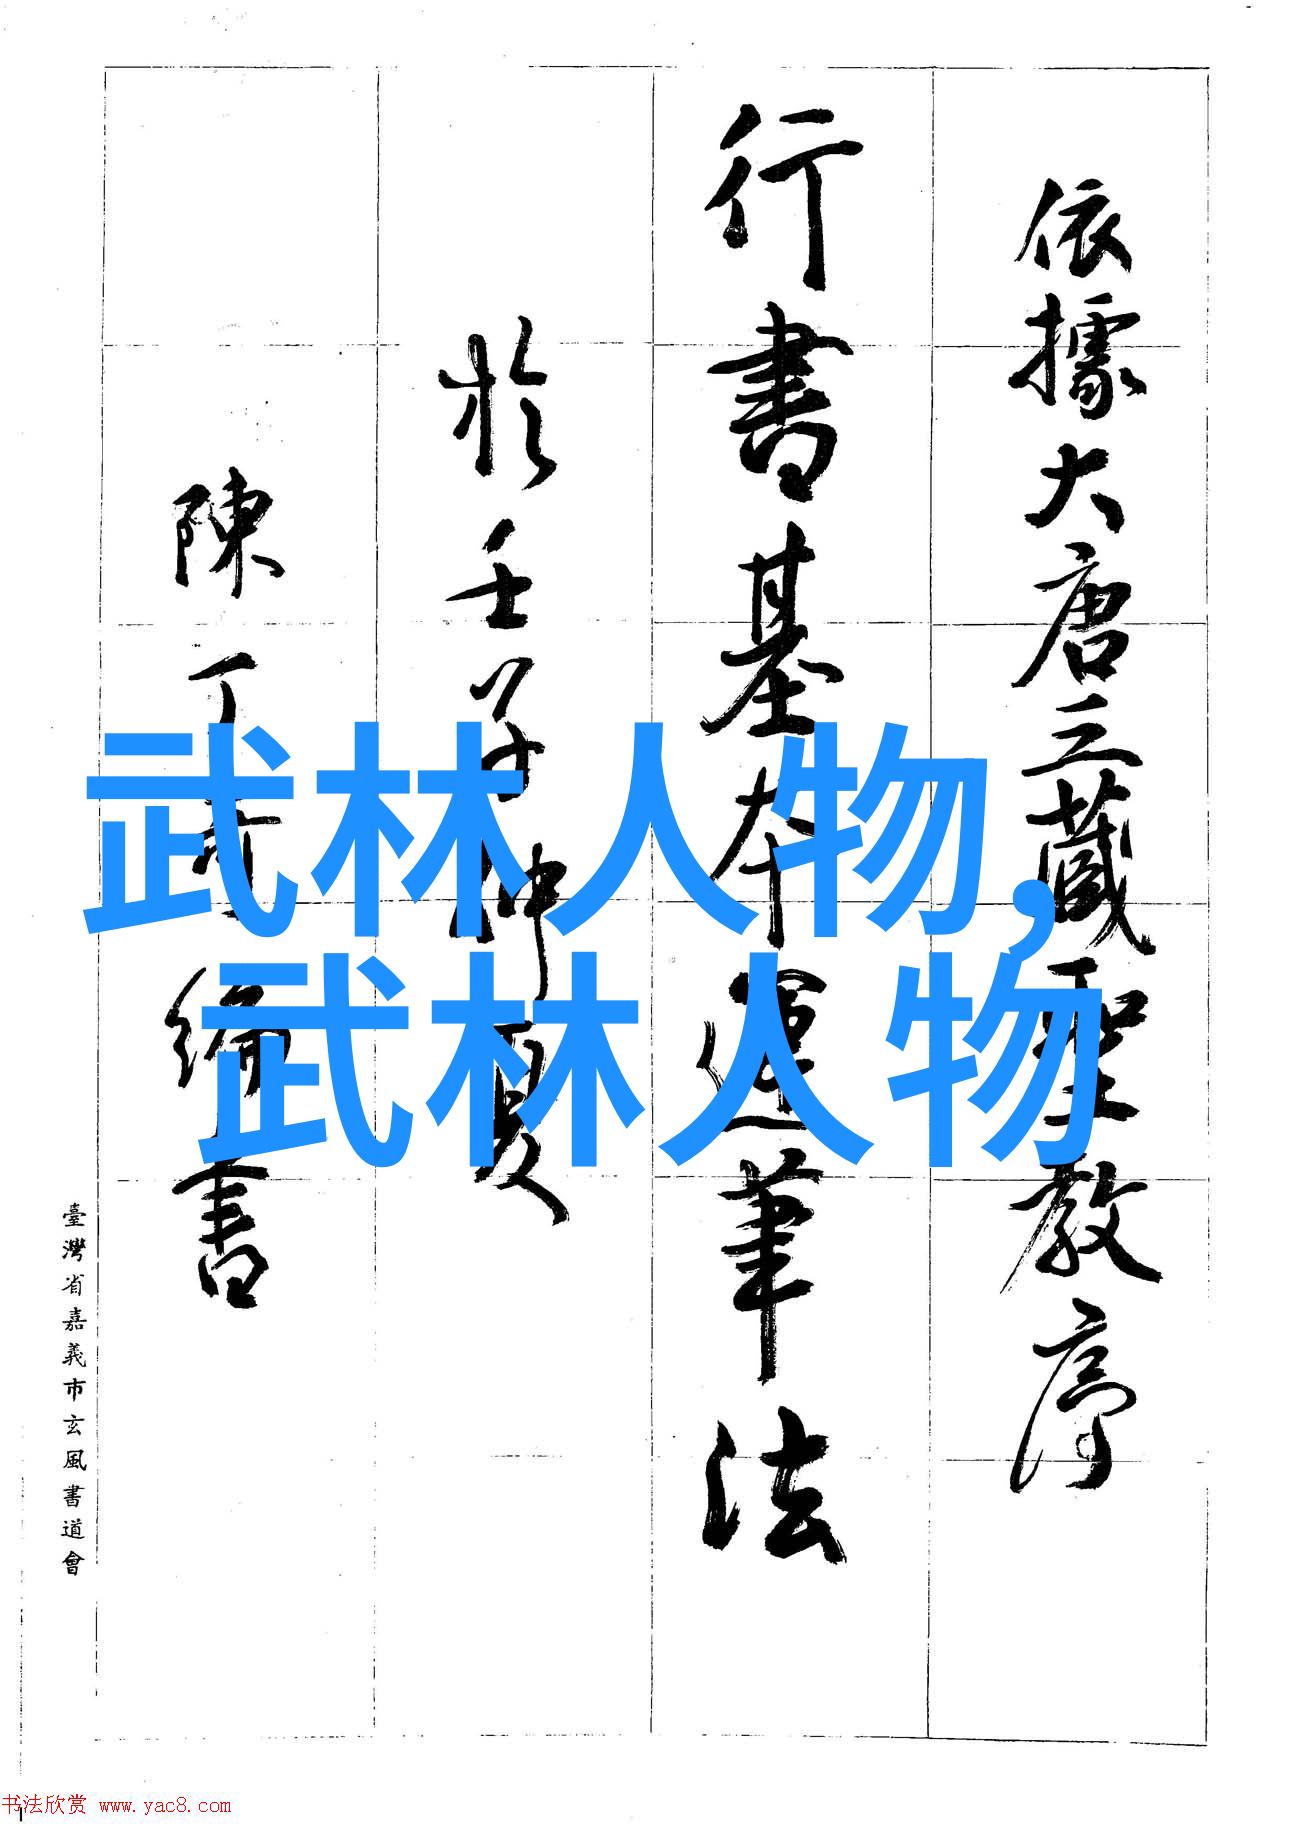 依據大唐三藏聖教序
行書基本運筆法
於壬子仲夏
陳丁奇編書
臺灣省嘉義市玄風書道會
武林人物,
武林人物
书法欣赏 www.yac8.com
1